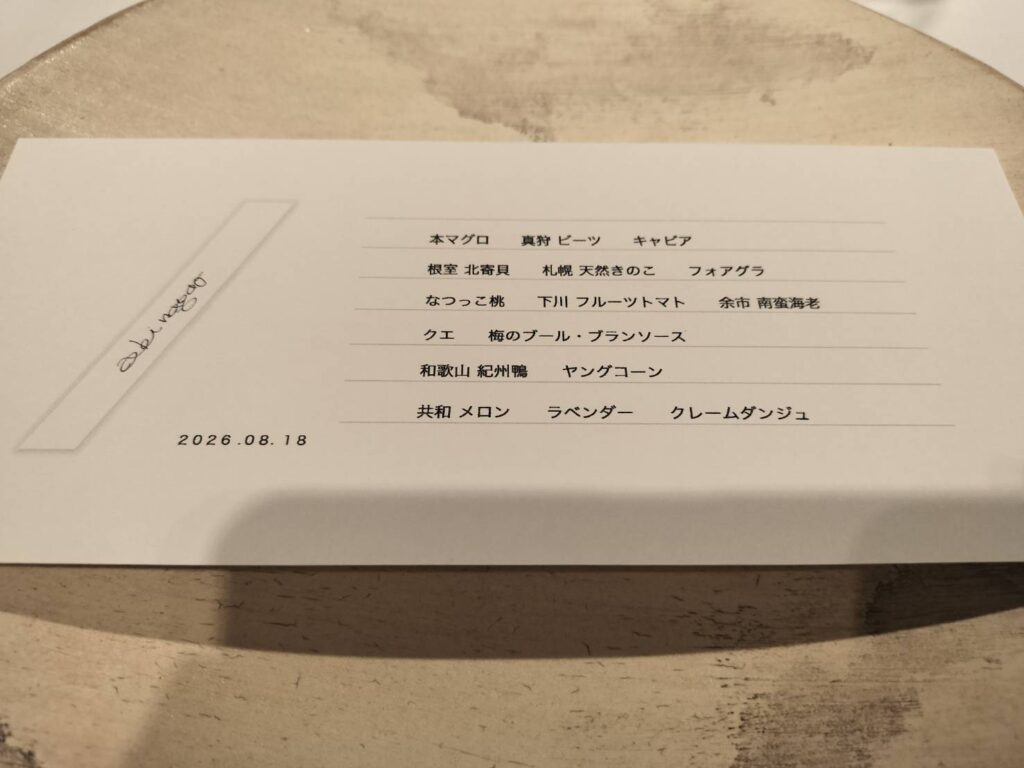 aki nagao
2026.08.18
本マグロ 真狩 ビーツ キャビア
根室 北寄貝 札幌 天然きのこ フォアグラ
なつっこ桃 下川 フルーツトマト 余市 南蛮海老
クエ 梅のブール・ブランソース
和歌山 紀州鴨 ヤングコーン
共和 メロン ラベンダー クレームダンジュ